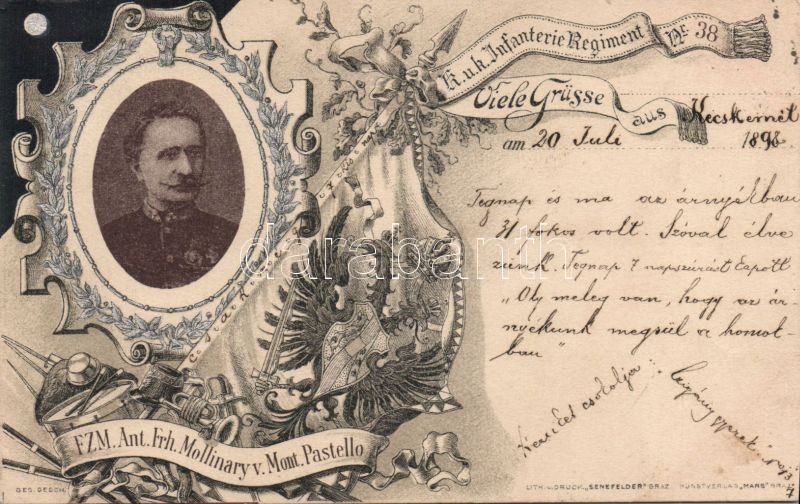 K.u.k. Infanterie Regiment Nr. 38
Viele Grüsse aus Kecskemét
am 20 Juli 1898
Tegnap és ma az árnyékban
31 fokos volt. Szóval élve
sülünk. Tegnap 7 napszúrást kapott
„Oly meleg van, hogy az ár-
nyékunk megsül a homok-
ban"
csókolja:
FZM. Ant. Frh. Mollinary v. Mont. Pastello
GES. GESCH.
LITH. u. DRUCK. „SENEFELDER" GRAZ. KUNSTVERLAG „MARS" GRAZ
darabanth